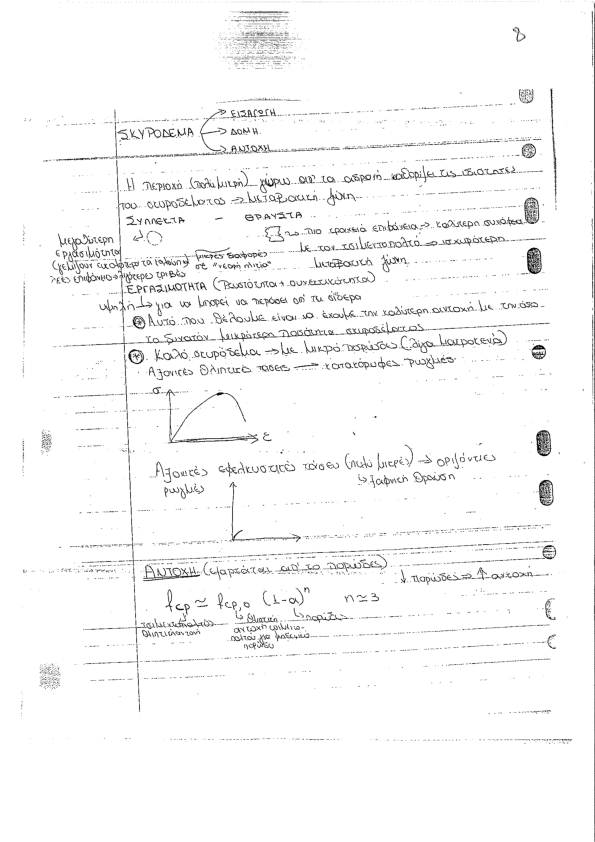 8
→ ΕΙΣΑΓΩΓΗ
ΣΚΥΡΟΔΕΜΑ → ΔΟΜΗ
→ ΑΝΤΟΧΗ
Η περιοχή (πολύ μικρή) γύρω απ' τα αδρανή καθορίζει τις ιδιότητες
του σκυροδέματος → Μεταβατική ζώνη
ΣΥΛΛΕΚΤΑ - ΘΡΑΥΣΤΑ
→ πιο τραχειά επιφάνεια → καλύτερη συνάφεια
με τον τσιμεντοπολτό → ισχυρότερη
μεταβατική ζώνη
μεγαλύτερη
εργασιμότητα
μικρές διαφορές
σε "νεαρή ηλικία"
ΕΡΓΑΣΙΜΟΤΗΤΑ (Ρευστότητα + συνεκτικότητα)
υψηλή → για να μπορεί να περάσει απ' τα σίδερα
* Αυτό που θέλουμε είναι να έχουμε την καλύτερη αντοχή με την όσο
το δυνατόν μικρότερη ποσότητα σκυροδέματος
* Καλό σκυρόδεμα → με μικρό πορώδες (λίγα μακροκενά)
Αξονικές θλιπτικές τάσεις → κατακόρυφες ρωγμές
σ
ε
Αξονικές εφελκυστικές τάσεις (πολύ μικρές) → οριζόντιες
ρωγμές ↳ ξαφνική θραύση
ΑΝΤΟΧΗ (εξαρτάται απ' το πορώδες)
↓ πορώδες ⇒ ↑ αντοχή
fcp ≃ fcp,o (1-a)^n n≃3
↳ θλιπτική ↳ πορώδες
αντοχή